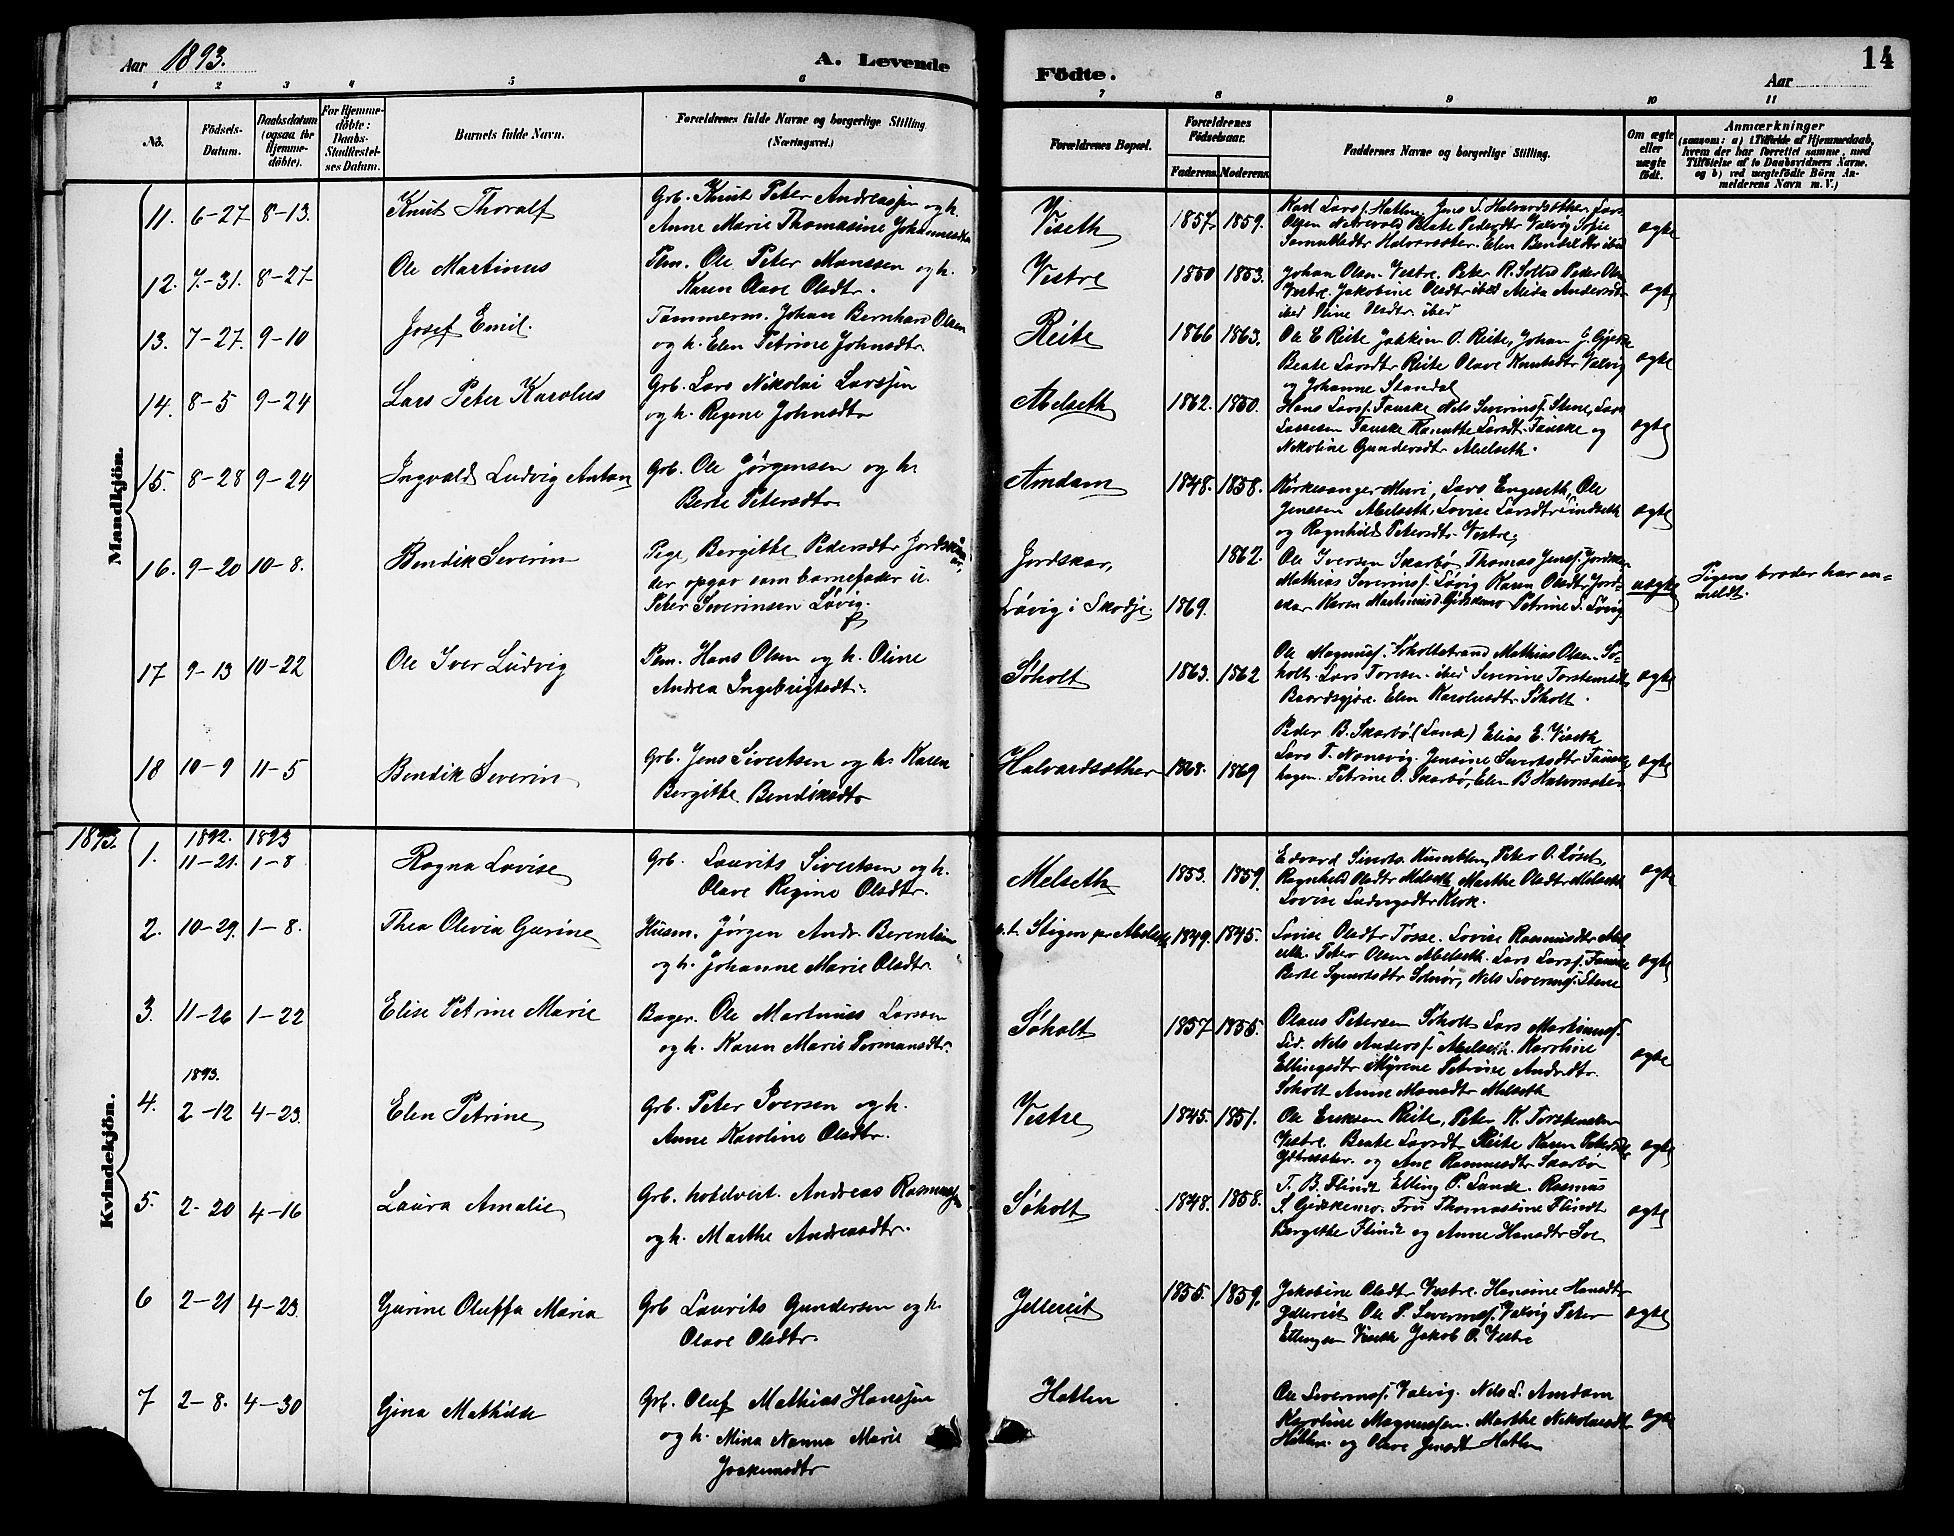 Aar 1893. A. Levende Födte. Aar 14
1 2 3 4 5 6 7 8 9 10 11
No. Födsels-Datum. Daabsdatum (ogsaa for Hjemmedöbte). For Hjemmedöbte: Daabs-Stadfæstelses Datum. Barnets fulde Navn. Forældrenes fulde Navne og borgerlige Stilling (Næringsvei.) Forældrenes Bopæl. Forældrenes Födselsaar. Faderens. Moderens. Faddernes Navne og borgerlige Stilling. Om ægte eller uægte födt. Anmærkninger (saasom: a) i Tilfælde af Hjemmedaab, hvem der har forrettet samme, med Tilföielse af to Daabsvidners Navne, og b) ved uægtefödte Börn Anmelderens Navn m. V.)
Mandkjön.
11. 6-27 8-13. Knut Thoralf
Grb. Knut Peter Andreassen og h.
Anne Marie Thomasine Johannesdtr
Viseth 1857. 1859.
Karl Larsf. Hatlen, Jens S. Halvardsæther, Lars
Olsen Beate Pedersdtr Valvig Sofie
Samuelsdtr Halvarsæther. Elen Bendiksdtr ibid
ægte
12. 7-31. 8-27 Ole Martinus
Pem. Ole Peter Monssen og h.
Karen Olave Olsdtr.
Vestre 1850 1853.
Johan Olsen Vestre. Peter R. Peder Olsen
Vestre. Jakobine Olsdtr ibid Andersdtr
ibid Stine Olsdtr. ibid
ægte
13. 7-27. 9-10 Josef Emil.
Tömmerm. Johan Bernhard Olsen
og h. Elen Petrine Johnsdtr
Reite 1866 1863.
Ole E Reite Jakkim O. Reite, Johan J.
Beate Larsdtr Reite Olave Knutsdtr Valvig
og Johanne Standal
ægte
14. 8-5 9-24 Lars Peter Karolus
Grb. Lars Nikolai Larssen
og h. Regine Johnsdtr
Melseth 1862. 1850.
Hans Larsf. Fauske Nels Severinsf. Stene, Lars
Larssen Fauske Larsdtr. Fauske og
Nikoline Gundersdtr Melseth.
ægte
15. 8-28 9-24 Ingvald Ludvig Anton
Grb. Ole Jørgensen og h.
Berte Petersdtr.
Amdam 1848. 1858.
Kirkesanger Muri, Lars Engeseth, Ole
Jenssen Melseth, Lovise Larsdtr Lindseth
og Ragnhild Petersdtr Vestre,
ægte
16. 9-20 10-8. Bendik Severin
Pige Bergitte Pedersdtr Jordskar
der opgav som barnefader u.
Peter Severinsen Løvig.
Jordskar, 1862.
Løvig i Skodje. 1869.
Ole Iversen Skarbø Thomas Jensf. Jordskar
Mathias Severinsf. Løvig Karen Olsdtr Jord-
skar Karen Petrine S. Løvig
uægte
Pigens broder har an-
meldt.
17 9-13 10-22 Ole Iver Ludvig
Pem. Hans Olsen og h. Oline
Andrea Ingebrigtsdtr.
Søholt 1863. 1862
Ole Magnusf. Søholtstrand Mathias Olsen Sø-
holt. Lars Toresen ibid Severine Torstensdtr
Baardsgjøre. Elen Karolusdtr Søholt.
ægte
18 10-9 11-5 Bendik Severin
Grb. Jens Sivertsen og h. Karen
Bergitte Bendiksdtr
Halvardsæther 1868. 1869
Peder B. Skarbø (Lande) Elias E. Viseth
Lars T. Jensine Sivertsdtr Fauske-
hagen. Petrine O. Skarbø, Elen B Halvorsæter
ægte
Kvindekjön.
1893. 1892. 1893
1. 11-21. 1-8 Ragna Lovise
Grb. Laurits Sivertsen og h.
Olave Regine Olsdtr.
Melseth 1853. 1859.
Edvard Siverts. Peter O. Løset,
Ragnhild Olsdtr Melseth Marthe Olsdtr Melseth
Lovise Ludvigsdtr
ægte
2. 10-29. 1-8. Thea Olivia Gurine
Husm. Jørgen Andr. Berentsen
og h. Johanne Marie Olsdtr.
p.t. Stigen pr Melseth 1849. 1845.
Lovise Olsdtr Fosse. Lovise Rasmusdtr Mel-
seth. Peter Olsen Melseth. Lars Larsf. Fauske
Berte Sjursdtr Solnør, Nels Severinsf. Stene
ægte
3. 11-26 1-22 Elise Petrine Marie
Bager. Ole Martinus Larsen
og h. Karen Marie Permansdtr.
Søholt 1857 1855.
Olaus Petersen Søholt Lars Martinusf.
Lid. Nils Andersf. Melseth. Karoline
Ellingsdtr Myrene Petrine Andrdtr.
Søholt Anne Monsdtr Melseth
ægte
1893.
4. 2-12 4-23. Elen Petrine
Grb. Peter Iversen og h.
Anne Karoline Olsdtr.
Vestre 1845. 1851.
Ole Eriksen Reite, Peter K. Torstensen
Vestre. Beate Larsdtr Reite Karen Petersdtr
og Ane Rasmusdtr Skarbø
ægte
5. 2-20 4-16 Laura Amalie
Grb. hotelvert. Andreas Rasmussen
og h. Marthe Andreasdtr.
Søholt 1848. 1858.
T. B. Flindt Elling P. Lande. Rasmus
S. Gidskemo. Fru Thomasine Flindt
Bergitte Flindt og Anne Hansdtr
ægte
6 2-21 4-23. Gurine Oluffa Maria
Grb Laurits Gundersen og h.
Olave Olsdtr.
Jellereit 1855. 1859.
Jakobine Olsdtr Vestre. Hansine Hansdtr
Jellereit Ole P. Severinsf. Valvig Peter
Ellingsen Viseth Jakob O. Vestre
ægte
7 2-8. 4-30 Gina Mathilde
Grb. Oluf Mathias Hanssen
og h. Mina Nanna Marie
Joakimsdtr
Hatlen
Ole Severinsf. Valvig. Nils L. Amdam
Karoline Magnussen. Marthe Nikolaisdtr
Hatlen. og Olave Jensdtr Hatlen
ægte